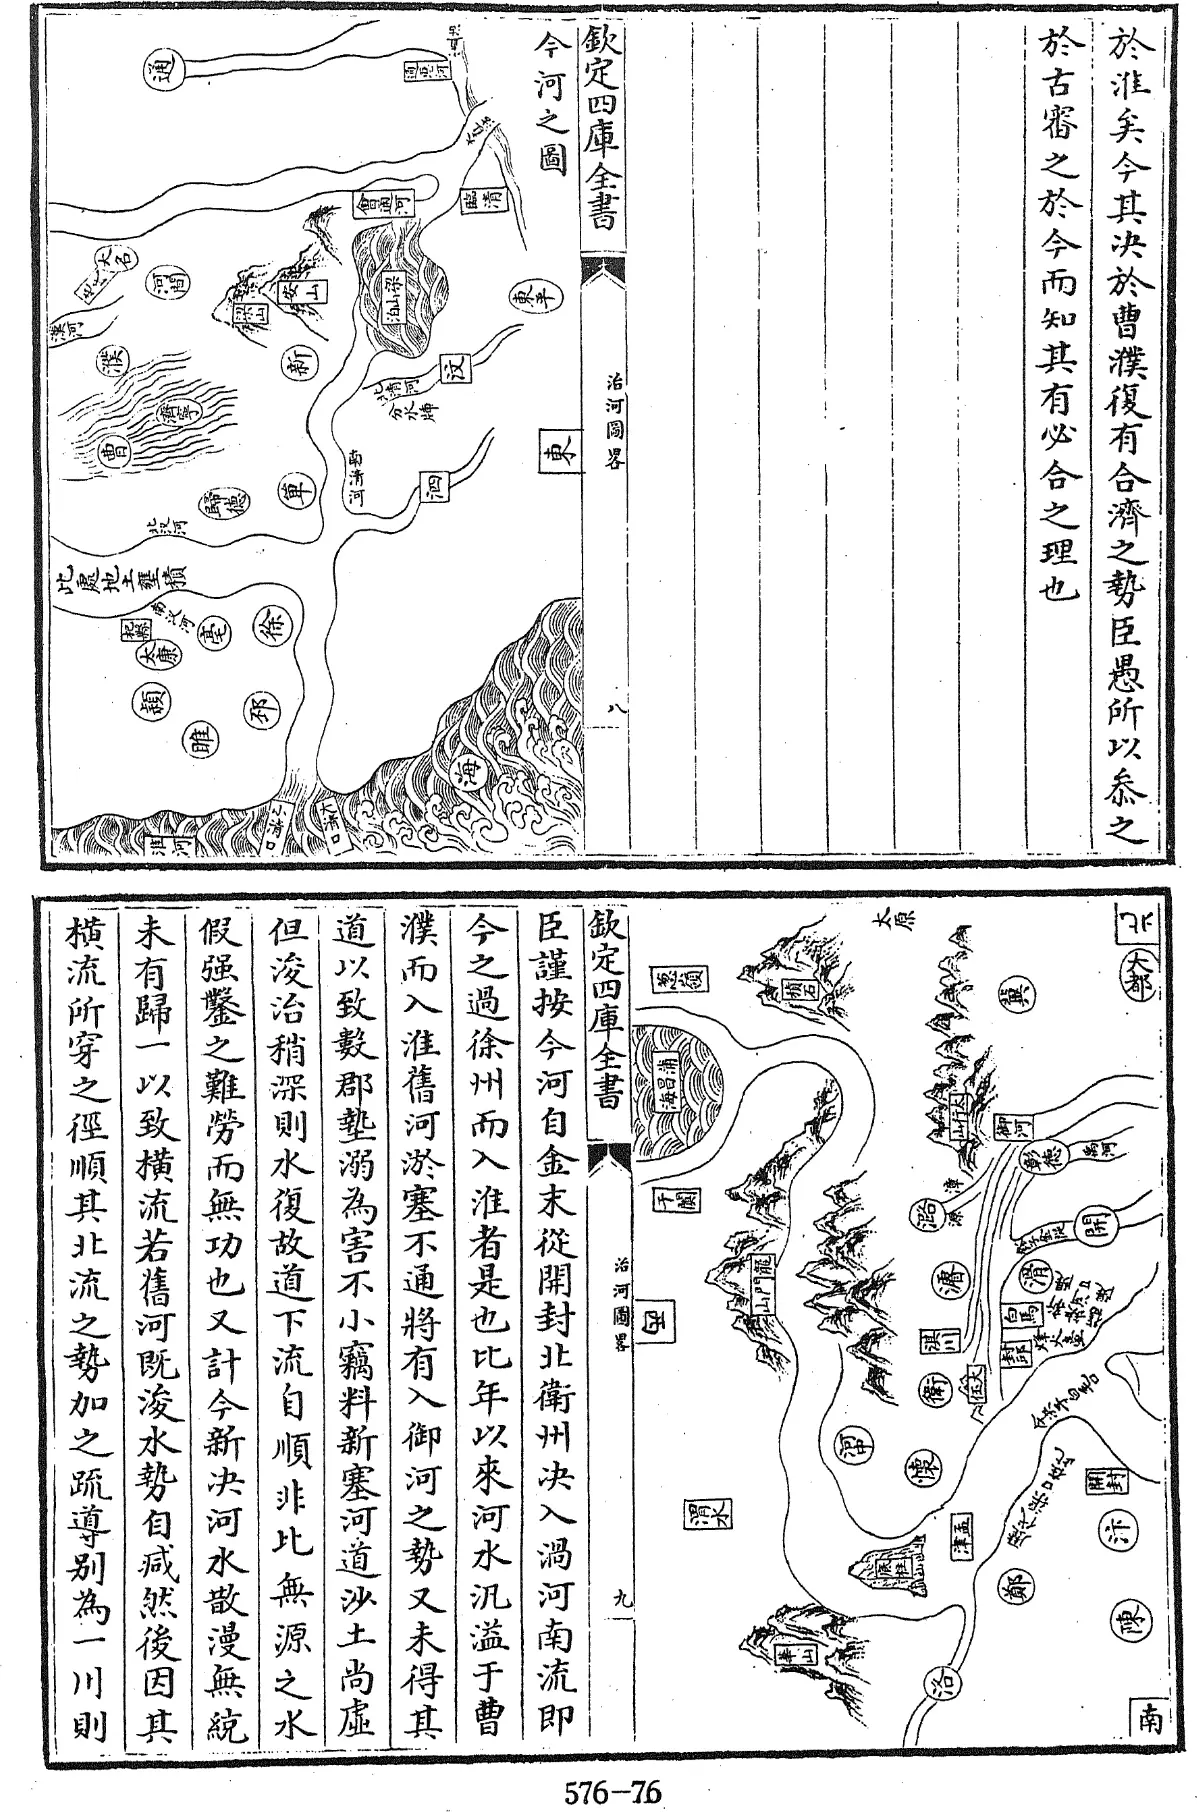 於淮矣今其决於曹濮復有合濟之勢臣愚所以叅之
於古審之於今而知其有必合之理也
欽定四庫全書
治河圖畧
八
今河之圖
通
臨清
會通河
梁山泊
安山
梁山
東平
大名
河間
漢河
濮
新
汶
北清河
分水埽
濟寧
曹
東
南清河
泗
單
歸德
北汊河
此處地土壅積
南汊河
杞縣
亳
徐
太康
潁
邳
睢
海
淮河
小清口
大清口
北
大都
冀
太原
積石
葱嶺
蒲昌海
于闐
太行山
御河
彰德
潞
漳源
開
滑
濬
白馬
淇川
封邱
衛
龍門山
西
河中
懷
開封
汴
孟津
渭水
底柱
鄭
陳
華山
洛
南
欽定四庫全書
治河圖畧
九
臣謹按今河自金末從開封北衛州决入渦河南流即
今之過徐州而入淮者是也比年以來河水汎溢于曹
濮而入淮舊河淤塞不通將有入御河之勢又未得其
道以致數郡墊溺為害不小竊料新塞河道沙土尚虛
但浚治稍深則水復故道下流自順非比無源之水
假强鑿之難勞而無功也又計今新决河水散漫無統
未有歸一以致橫流若舊河既浚水勢自減然後因其
橫流所穿之徑順其北流之勢加之疏導别為一川則
576-76